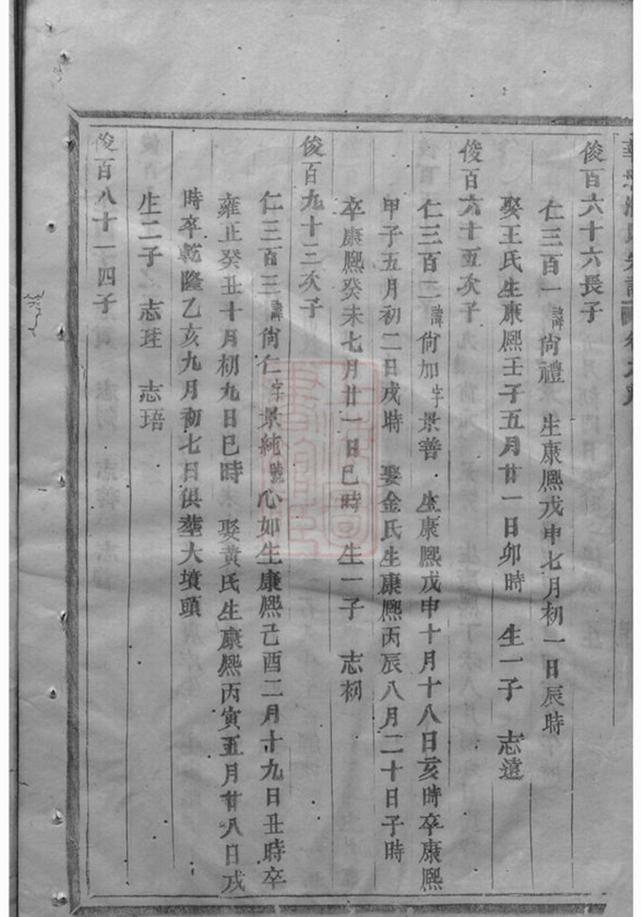 俊百六十六長子
仁三百一諱尙禮　生康熙戊申七月初一日辰時
娶王氏生康熙壬子五月廿一日卯時　生一子　志遠
俊百六十五次子
仁三百二諱尙加字景善　生康熙戊申十月十八日亥時卒康熙
甲子五月初二日戌時　娶金氏生康熙丙辰八月二十日子時
卒康熙癸未七月廿一日巳時　生一子　志初
俊百九十二次子
仁三百三諱尙仁字景純號心如生康熙己酉二月十九日丑時卒
雍正癸丑十月初九日巳時　娶黃氏生康熙丙寅五月廿八日戌
時卒乾隆乙亥九月初七日俱塟大墳頭
生二子　志珪　志珸
俊百八十一四子